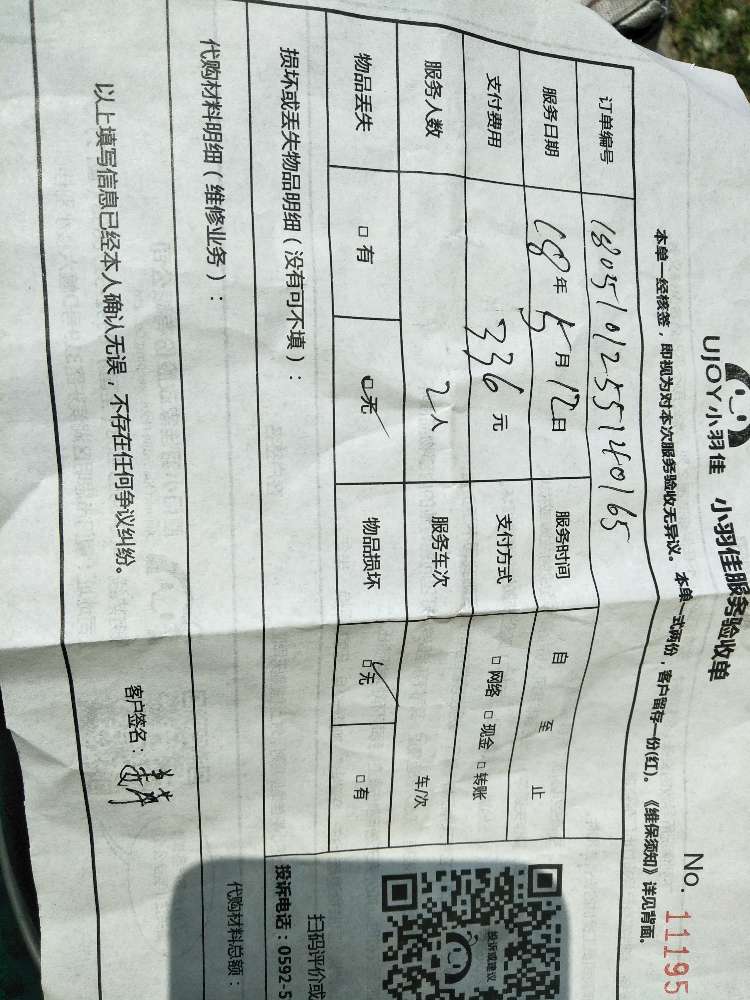 UJOY小羽佳 小羽佳服务验收单 No. 11195
本单一经核签，即视为对本次服务验收无异议。本单一式两份，客户留存一份(红)。《维保须知》详见背面。
订单编号 1805101255140165
服务日期 18年5月12日 服务时间 自 至 止
支付费用 336元 支付方式 □网络 □现金 □转账
服务人数 2人 服务车次 车/次
物品丢失 □有 □无 物品损坏 □无 □有
损坏或丢失物品明细（没有可不填）：
代购材料明细（维修业务）：
代购材料总额：
以上填写信息已经本人确认无误，不存在任何争议纠纷。
客户签名：
投诉或建议
扫码评价或
投诉电话：0592-5